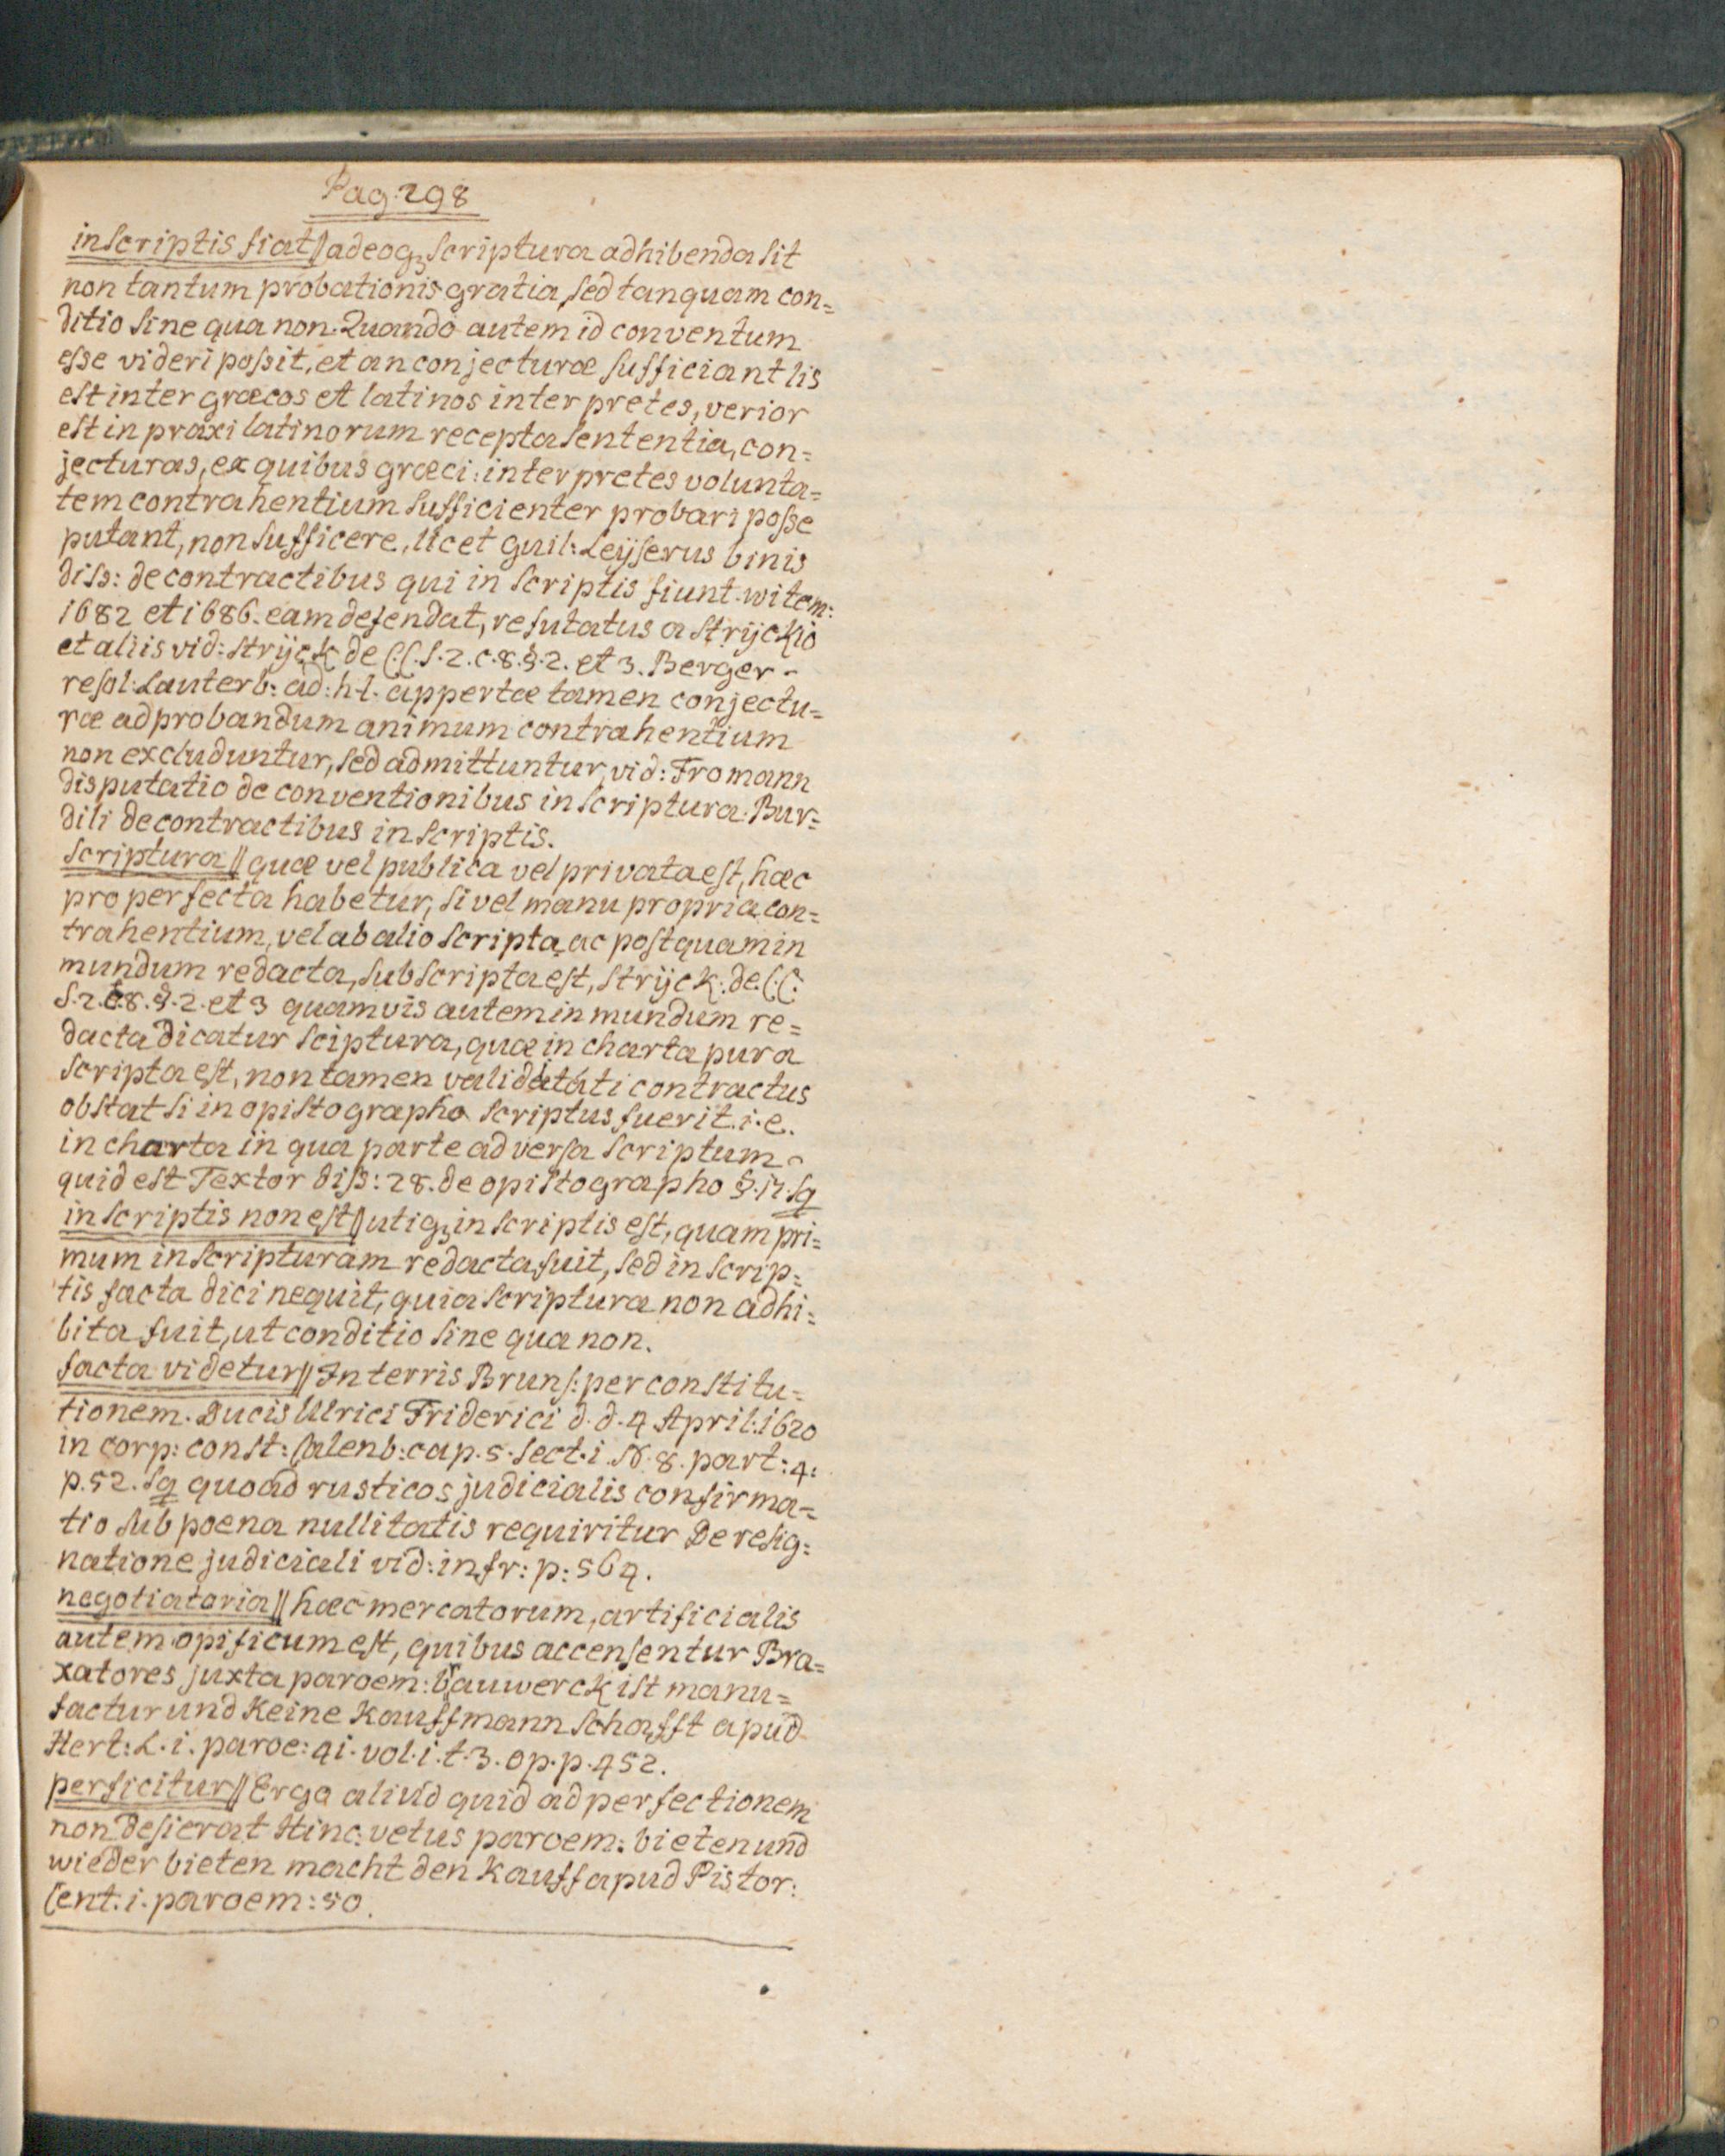 Pag. 298
in scriptis fiat || adeoq; scriptura adhibenda sit
non tantum probationis gratia, sed tanquam con=
ditio sine qua non. Quando autem id conventum
esse videri possit, et an conjecturæ sufficiant lis
est inter græcos et latinos interpretes, verior
est in praxi latinorum recepta sententia, con=
jecturas, ex quibus græci interpretes volunta=
tem contrahentium sufficienter probari posse
putant, non sufficere, licet Guil: Leyserus binis
diss: de contractibus qui in scriptis fiunt witem:
1682 et 1686. eam defendat, refutatus a Stryckio
et aliis vid: Stryck de C.C. S. 2. c. 8. §. 2. et 3. Berger
resol: Lauterb: ad: h. t. appertæ tamen conjectu=
ræ ad probandum animum contrahentium
non excluduntur, sed admittuntur, vid: Fromann
disputatio de conventionibus in scriptura. Bur=
dili de contractibus in scriptis.
scriptura || quæ vel publica vel privata est, hæc
pro perfecta habetur, si vel manu propria con=
trahentium, vel ab alio scripta, ac postquam in
mundum redacta, subscripta est, Stryck: de C.C.
S. 2. c. 8. §. 2. et 3 quamvis autem in mundum re=
dacta dicatur sciptura, quæ in charta pura
scripta est, non tamen validitati contractus
obstat si in opistographo scriptus fuerit. i. e.
in charta in qua parte adversa scriptum
quid est Textor diss: 28. de opistographo §. 17. sq
in scriptis non est || utiq; in scriptis est, quam pri=
mum in scripturam redacta fuit, sed in scrip=
tis facta dici nequit, quia scriptura non adhi=
bita fuit, ut conditio sine qua non.
facta videtur || In terris Bruns: per constitu=
tionem. Ducis Ulrici Friderici d. d. 4 April: 1620
in corp: const: Calenb: cap. 5. sect. i. N. 8. part: 4.
p. 52. sq quoad rusticos judicialis confirma=
tio sub poena nullitatis requiritur De resig=
natione judiciali vid: infr: p: 564.
negotiatoria || hæc mercatorum, artificialis
autem opificum est, quibus accensentur Bra=
xatores juxta paroem: brauwerck ist manu=
factur und Keine Kauffmannschafft apud
Hert: L. i. paroe: 41. vol. i. t. 3. op. p. 452.
perficitur || Ergo aliud quid ad perfectionem
non desierat Hinc vetus paroem: bieten und
wieder bieten macht den Kauff apud Pistor:
Cent. i. paroem: 50.